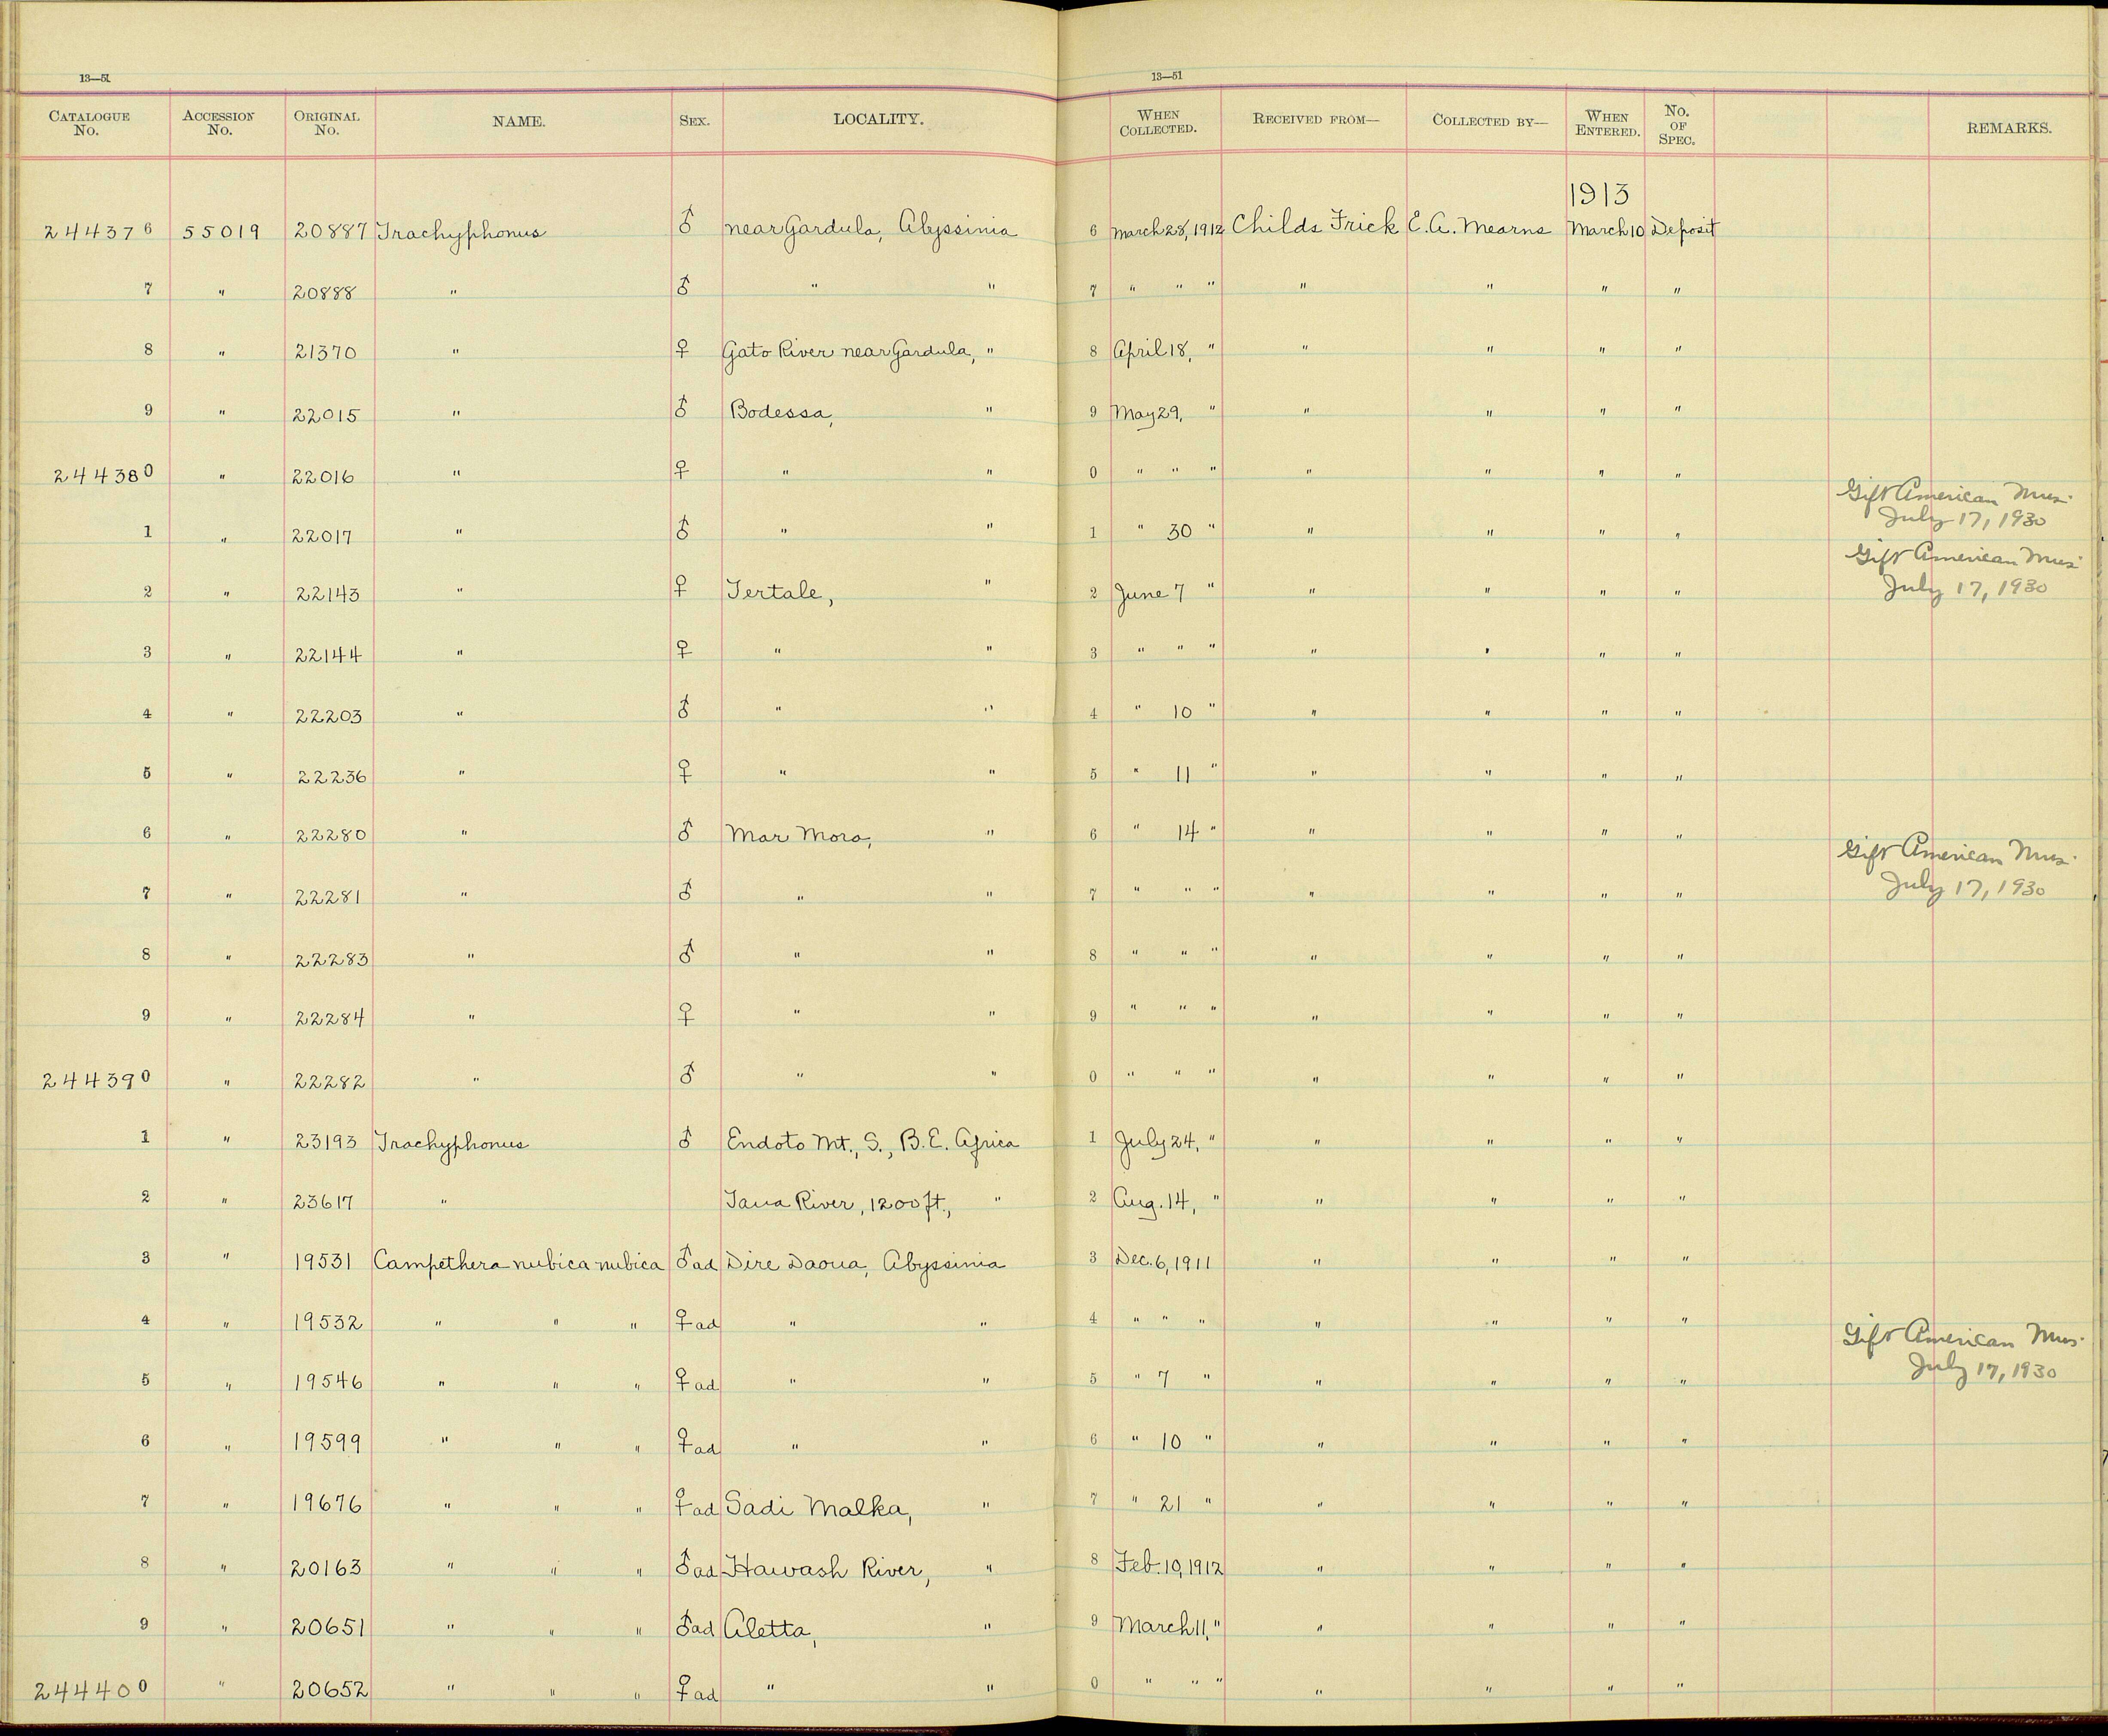 13—51 13—51
CATALOGUE No. ACCESSION No. ORIGINAL No. NAME. SEX. LOCALITY. WHEN COLLECTED. RECEIVED FROM— COLLECTED BY— WHEN ENTERED. No. OF SPEC. REMARKS.
1913
244376 55019 20887 Trachyphonus ♂ near Gardula, Abyssinia 6 March 28, 1912 Childs Frick E. A. Mearns March 10 Deposit
7 " 20888 " ♂ " " 7 " " " " " " "
8 " 21370 " ♀ Gato River near Gardula, " 8 April 18, " " " " "
9 " 22015 " ♂ Bodessa, " 9 May 29, " " " " "
244380 " 22016 " ♀ " " 0 " " " " " " "
Gift American Mus.
July 17, 1930
1 " 22017 " ♂ " " 1 " 30 " " " " "
Gift American Mus.
2 " 22143 " ♀ Tertale, " 2 June 7 " " " " " July 17, 1930
3 " 22144 " ♀ " " 3 " " " " " " "
4 " 22203 " ♂ " " 4 " 10 " " " " "
5 " 22236 " ♀ " " 5 " 11 " " " " "
6 " 22280 " ♂ Mar Mora, " 6 " 14 " " " " "
Gift American Mus.
7 " 22281 " ♂ " " 7 " " " " " " " July 17, 1930
8 " 22283 " ♂ " " 8 " " " " " " "
9 " 22284 " ♀ " " 9 " " " " " " "
244390 " 22282 " ♂ " " 0 " " " " " " "
1 " 23193 Trachyphonus ♂ Endoto Mt., S., B. E. Africa 1 July 24, " " " " "
2 " 23617 " Tana River, 1200 ft., " 2 Aug. 14, " " " " "
3 " 19531 Campethera nubica nubica ♂ ad Dire Daoua, Abyssinia 3 Dec. 6, 1911 " " " "
4 " 19532 " " " ♀ ad " " 4 " " " " " " "
Gift American Mus.
5 " 19546 " " " ♀ ad " " 5 " 7 " " " " " July 17, 1930
6 " 19599 " " " ♀ ad " " 6 " 10 " " " " "
7 " 19676 " " " ♀ ad Sadi Malka, " 7 " 21 " " " " "
8 " 20163 " " " ♂ ad Hawash River, " 8 Feb. 10, 1912 " " " "
9 " 20651 " " " ♂ ad Aletta, " 9 March 11, " " " " "
244400 " 20652 " " " ♀ ad " " 0 " " " " " " "